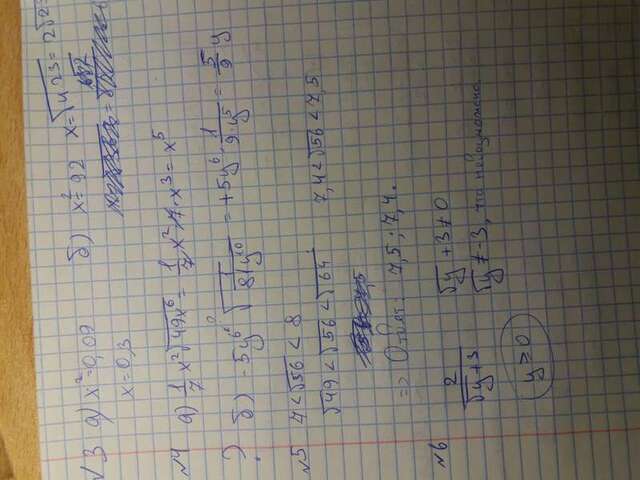 √3 а) x²=0,09 б) x²=92 x=√4·23=2√23
x=0,3
№4 а) 1/7 x²√49x⁶ = 1/7 x²·7·x³=x⁵
б) -5y⁶ √1/81y¹⁰ = +5y⁶·1/9·y⁵ = 5/9 y
№5 7<√56<8
√49<√56<√64 7,4<√56<7,5
=> Ответ: 7,5; 7,4.
№6 2/√y+3 √y+3≠0
√y≠-3, что невозможно.
y≥0